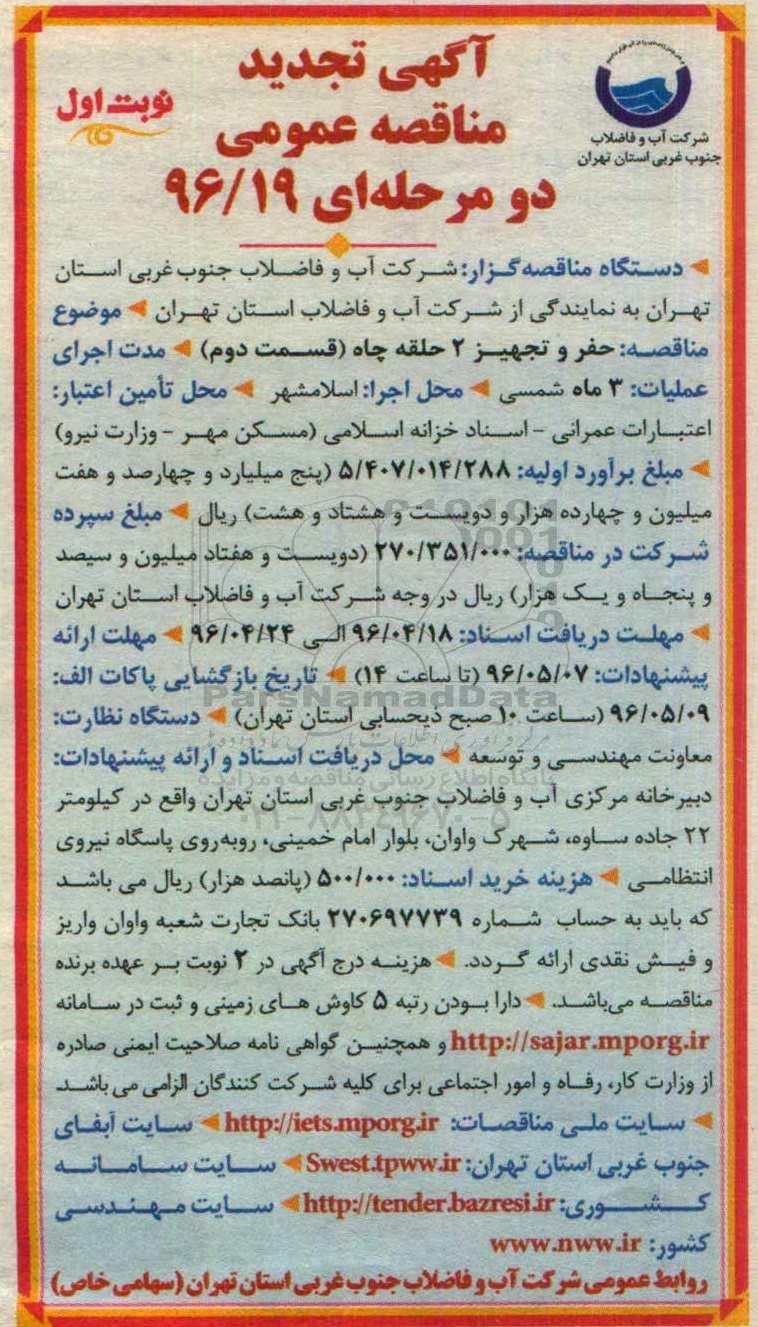 آگهی تجدید
مناقصه عمومی
دو مرحله‌ای ۹۶/۱۹
نوبت اول
شرکت آب و فاضلاب
جنوب غربی استان تهران
دستگاه مناقصه‌گزار: شرکت آب و فاضلاب جنوب غربی استان
تهران به نمایندگی از شرکت آب و فاضلاب استان تهران موضوع
مناقصه: حفر و تجهیز ۲ حلقه چاه (قسمت دوم) مدت اجرای
عملیات: ۳ ماه شمسی محل اجرا: اسلامشهر محل تأمین اعتبار:
اعتبارات عمرانی - اسناد خزانه اسلامی (مسکن مهر - وزارت نیرو)
مبلغ برآورد اولیه: ۵/۴۰۷/۰۱۴/۲۸۸ (پنج میلیارد و چهارصد و هفت
میلیون و چهارده هزار و دویست و هشتاد و هشت) ریال مبلغ سپرده
شرکت در مناقصه: ۲۷۰/۳۵۱/۰۰۰ (دویست و هفتاد میلیون و سیصد
و پنجاه و یک هزار) ریال در وجه شرکت آب و فاضلاب استان تهران
مهلت دریافت اسناد: ۹۶/۰۴/۱۸ الی ۹۶/۰۴/۲۴ مهلت ارائه
پیشنهادات: ۹۶/۰۵/۰۷ (تا ساعت ۱۴) تاریخ بازگشایی پاکات الف:
۹۶/۰۵/۰۹ (ساعت ۱۰ صبح ذیحسابی استان تهران) دستگاه نظارت:
معاونت مهندسی و توسعه محل دریافت اسناد و ارائه پیشنهادات:
دبیرخانه مرکزی آب و فاضلاب جنوب غربی استان تهران واقع در کیلومتر
۲۲ جاده ساوه، شهرک واوان، بلوار امام خمینی، روبه‌روی پاسگاه نیروی
انتظامی هزینه خرید اسناد: ۵۰۰/۰۰۰ (پانصد هزار) ریال می باشد
که باید به حساب شماره ۲۷۰۶۹۷۷۳۹ بانک تجارت شعبه واوان واریز
و فیش نقدی ارائه گردد. هزینه درج آگهی در ۲ نوبت بر عهده برنده
مناقصه می‌باشد. دارا بودن رتبه ۵ کاوش های زمینی و ثبت در سامانه
http://sajar.mporg.ir و همچنین گواهی نامه صلاحیت ایمنی صادره
از وزارت کار، رفاه و امور اجتماعی برای کلیه شرکت کنندگان الزامی می باشد.
سایت ملی مناقصات: http://iets.mporg.ir سایت آبفای
جنوب غربی استان تهران: Swest.tpww.ir سایت سامانه
کشوری: http://tender.bazresi.ir سایت مهندسی
کشور: www.nww.ir
روابط عمومی شرکت آب و فاضلاب جنوب غربی استان تهران (سهامی خاص)
ParsNamadData
پایگاه اطلاع رسانی مناقصه و مزایده
۰۲۱-۸۸۳۴۹۶۷۰-۵